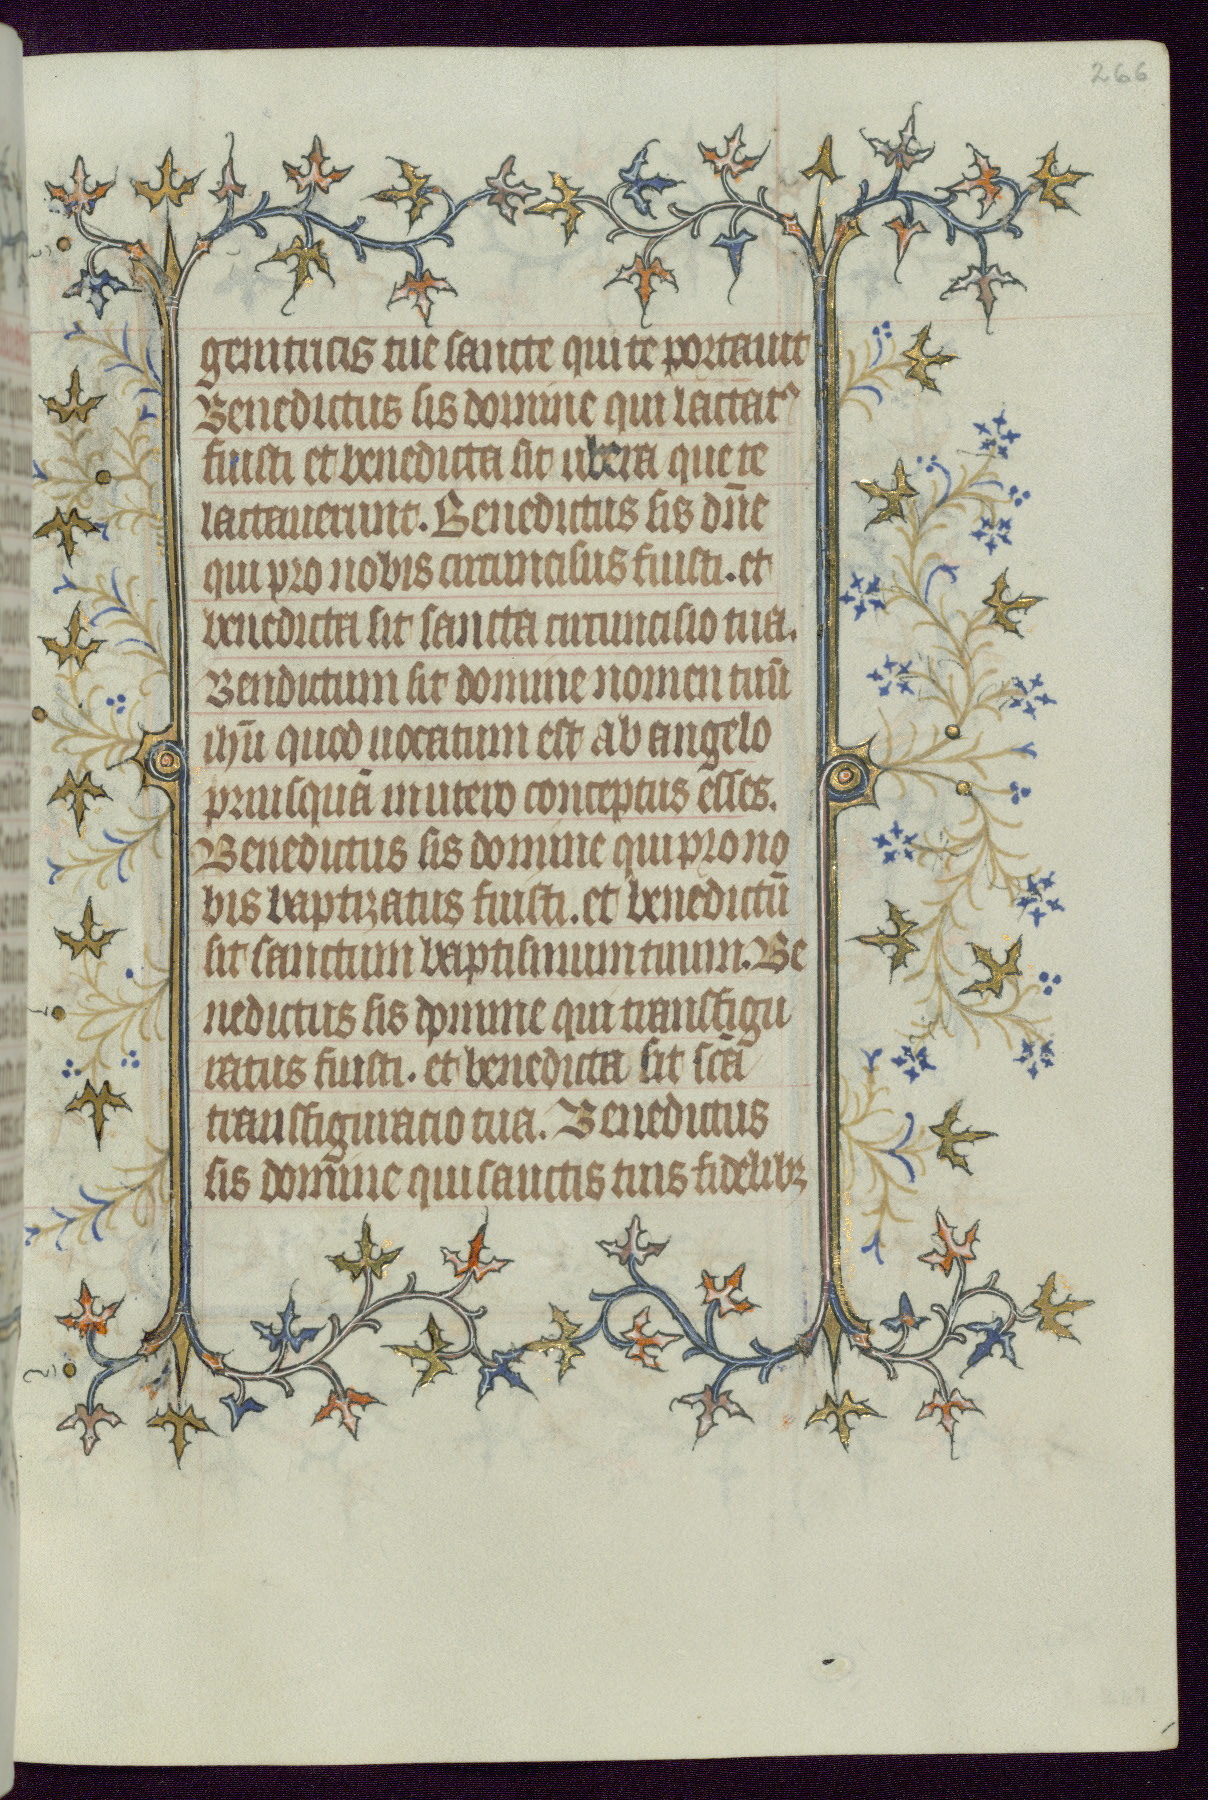 266
genitricis tue sancte qui te portauit
Benedictus sis domine qui lactat᾿
fuisti et benedicta sit ubera que te
lactauerunt. Benedictus sis dn̄e
qui pro nobis circuncisus fuisti. et
benedicta sit sancta circuncisio tua.
Bendictum sit domine nomen tuū
ihū quod uocatum est ab angelo
priusquā in utero conceptus esses.
Benedictus sis domine qui pro no
bis baptizatus fuisti. et benedictū
sit sanctum baptismum tuum. Be
nedictus sis domine qui transfigu
ratus fuisti. et benedicta sit scā
transfiguracio tua. Benedictus
sis domine qui sanctis tuis fidelibꝫ